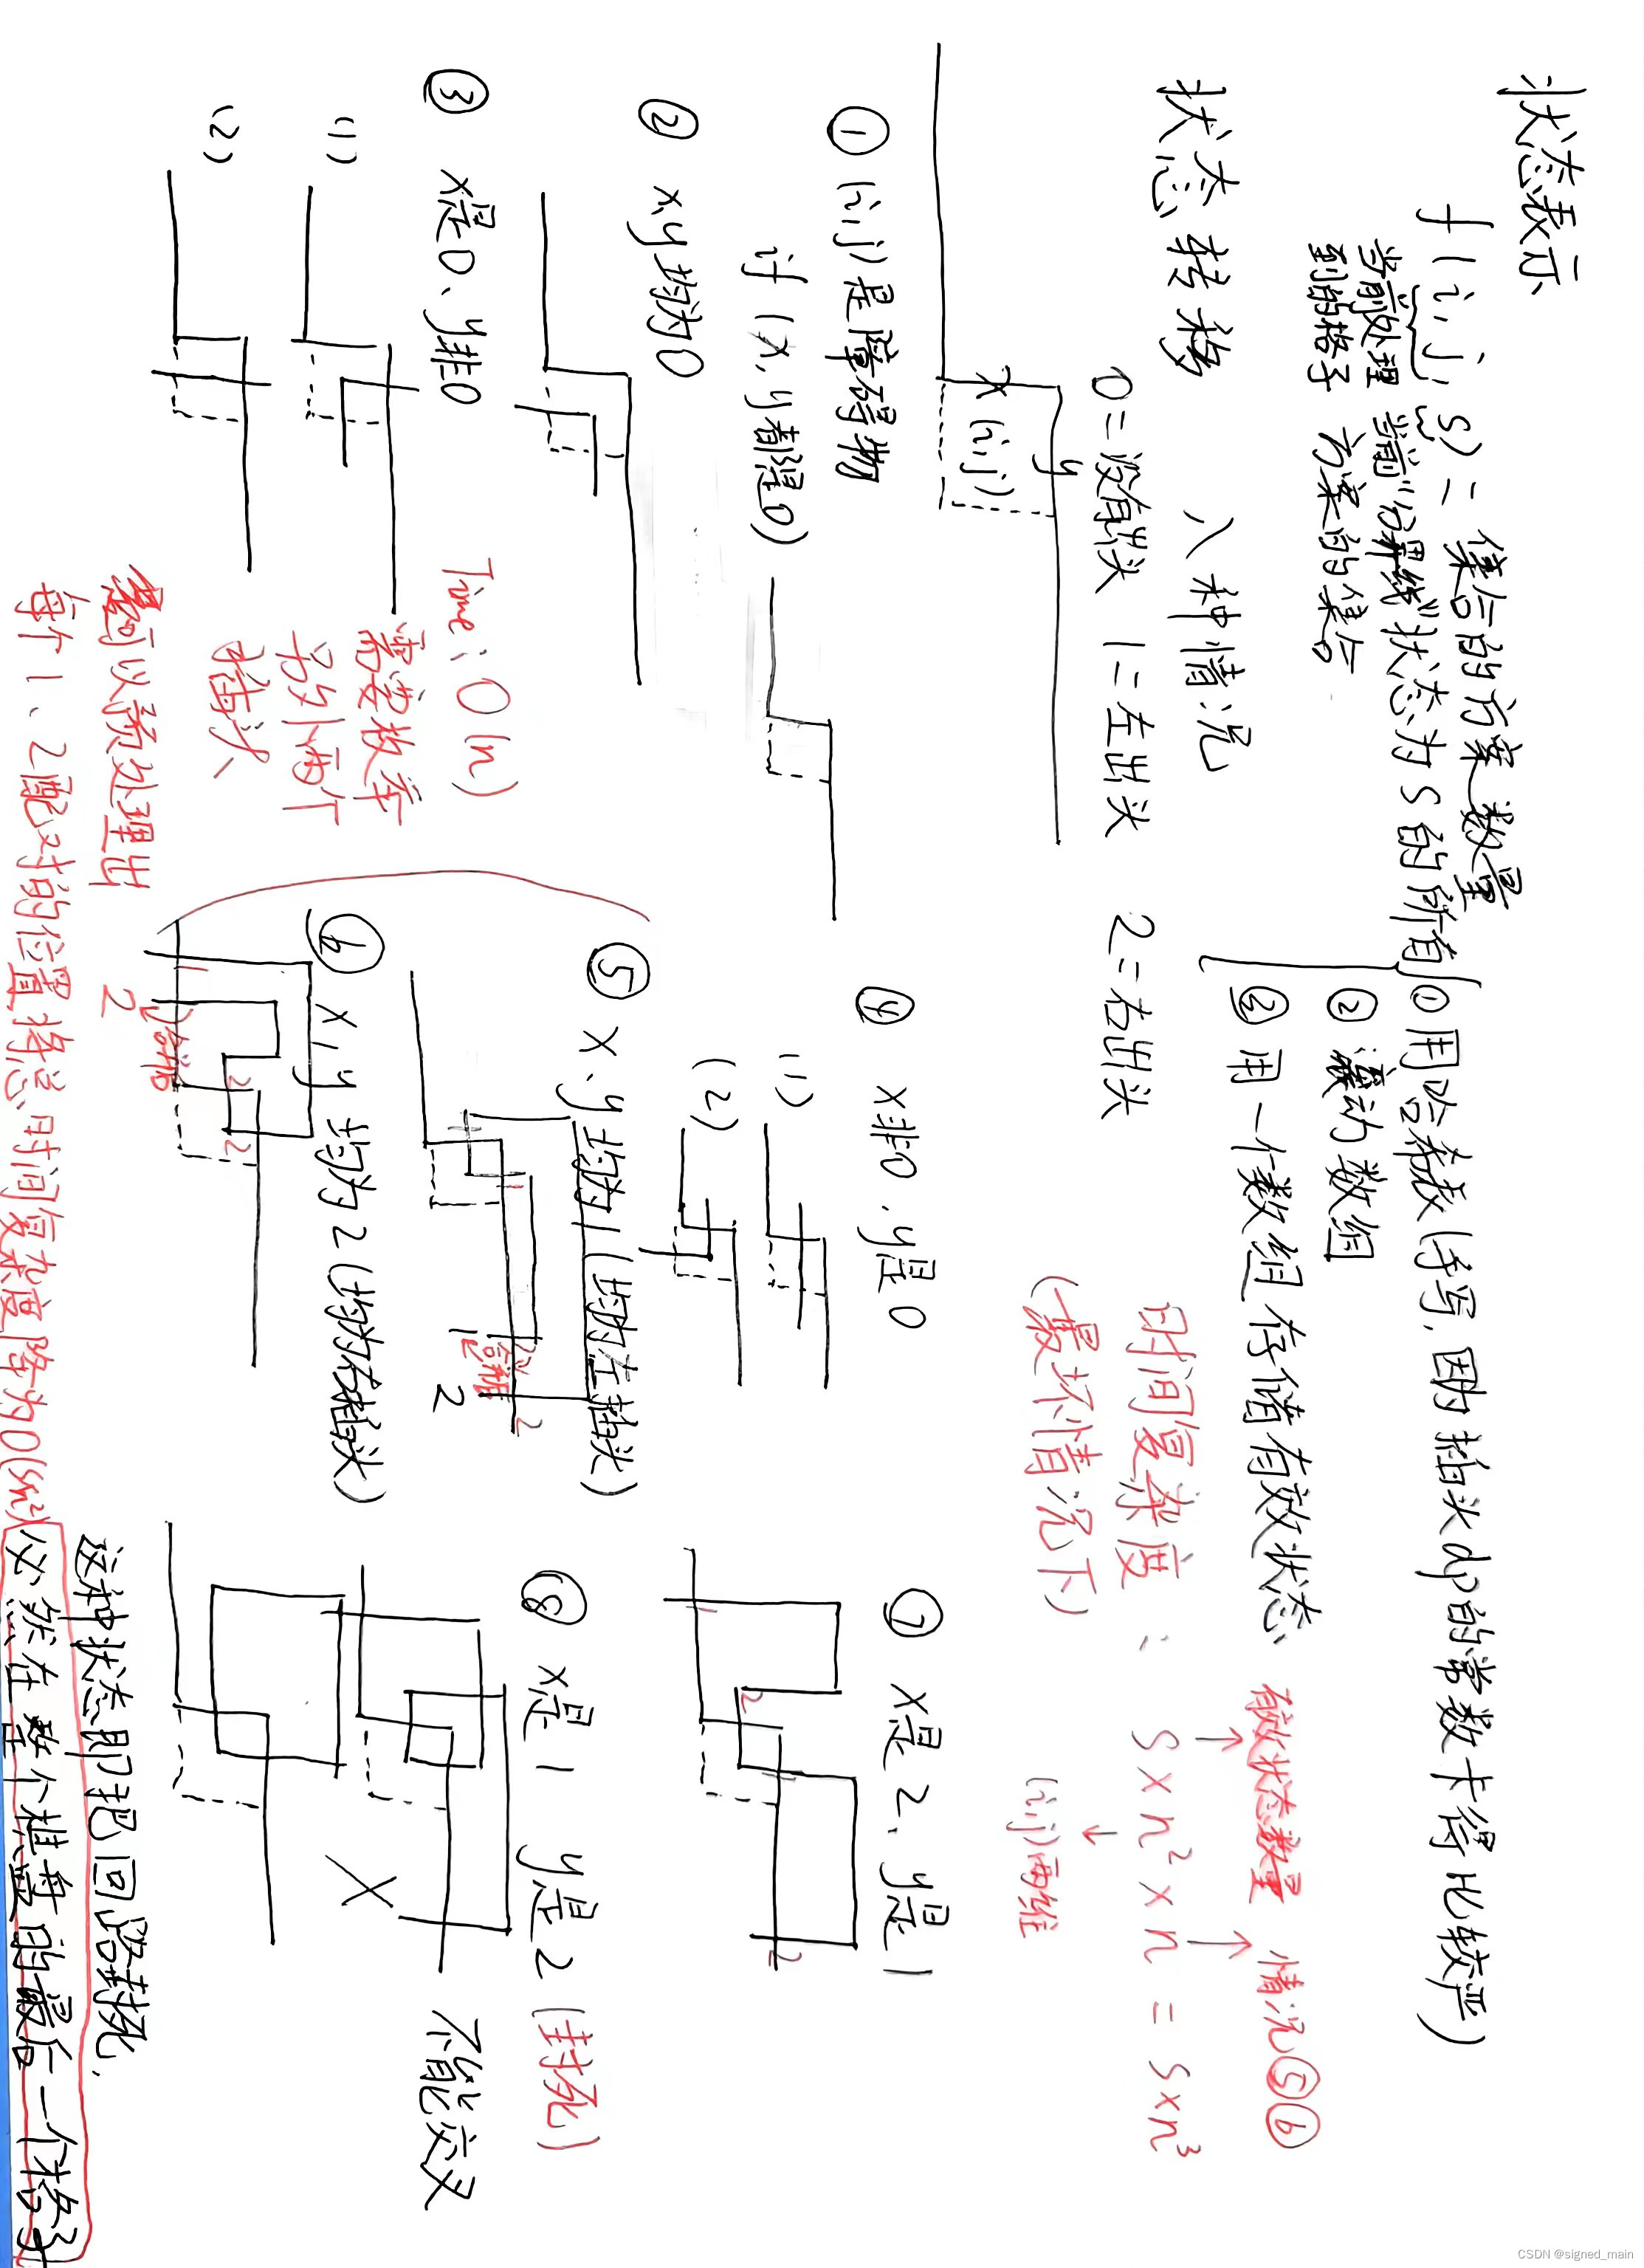 状态表示
f(i,j,s) = 集合的方案数量
当前处理到的格子
当前"分界线"状态为S的所有方案的集合
① 用哈希表(手写.因为插头dp的常数卡得比较严)
② 滚动数组
③ 用一个数组存储有效状态
状态转移 八种情况
0=没有插头 1=左出头 2=右出头
x
y
(i,j)
时间复杂度: S×n²×n = S×n³
(最坏情况下)
有效状态数量
(i,j)两维
情况⑤⑥
① (i,j)是障碍物
if (x,y都是0)
② x,y均为0
③ x是0、y非0
(1)
(2)
④ x非0、y是0
(1)
(2)
⑤ x、y均为1(均为左插头)
1
1
2
2
⑥ x,y均为2(均为右插头)
1
2
2
2
Time: O(n)
需要枚举另外两个插头
可以预处理出
每个1、2配对的位置,将总时间复杂度降为O(Sn²)
⑦ x是2、y是1
1
2
2
⑧ x是1 y是2 (封死)
X
不能交叉
这种状态即把回路封死,
必然在整个棋盘的最后一个格子
CSDN @signed_main